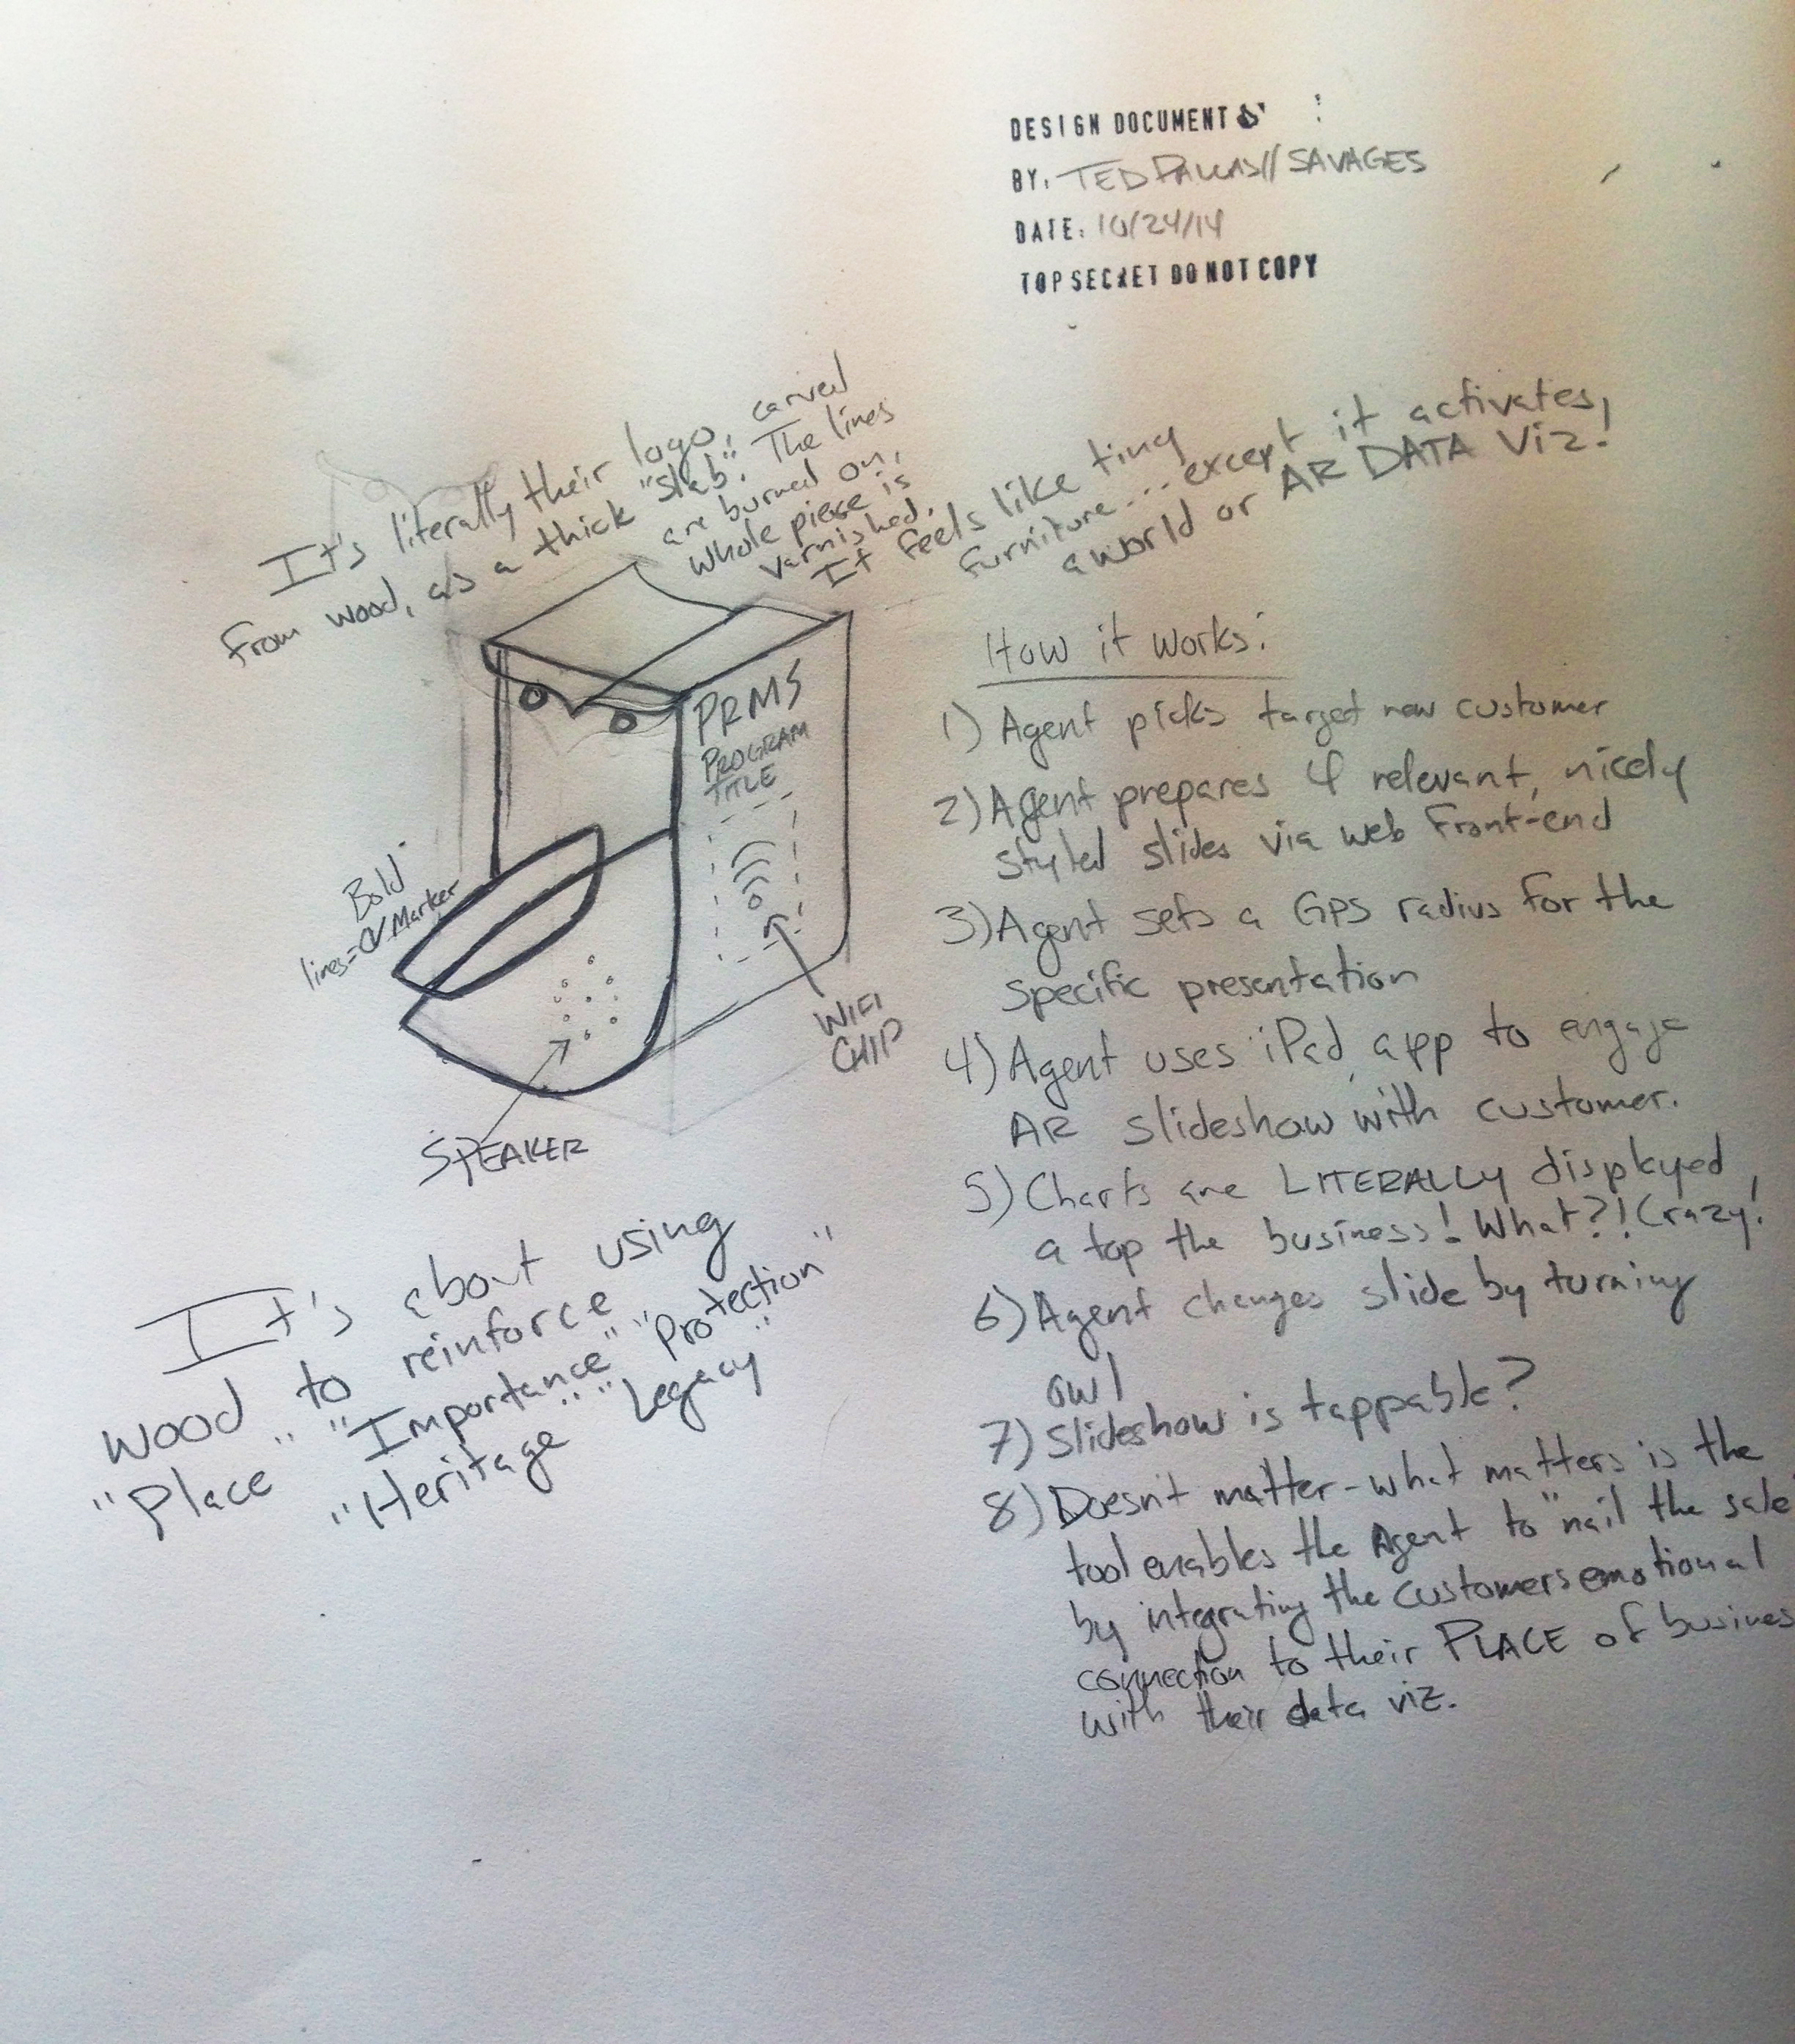 DESIGN DOCUMENT
BY: TED PALLAS // SAVAGES
DATE: 10/24/14
TOP SECRET DO NOT COPY
It's literally their logo, carved
from wood, as a thick "slab". The lines
are burned on,
whole piece is
varnished.
It feels like tiny
furniture... except it activates,
a world or AR DATA Viz!
PRMS
PROGRAM
TITLE
Bold
lines = Marker
WIFI
CHIP
SPEAKER
It's about using
wood to reinforce
"Place" "Importance" "Protection"
"Heritage" "Legacy"
How it works:
1) Agent picks target new customer
2) Agent prepares 4 relevant, nicely
styled slides via web front-end
3) Agent sets a GPS radius for the
specific presentation
4) Agent uses iPad app to engage
AR slideshow with customer.
5) Charts are LITERALLY displayed
a top the business! What?! Crazy!
6) Agent changes slide by turning
owl
7) Slideshow is tappable?
8) Doesn't matter - what matters is the
tool enables the Agent to "nail the sale"
by integrating the customers emotional
connection to their PLACE of busines
with their data viz.